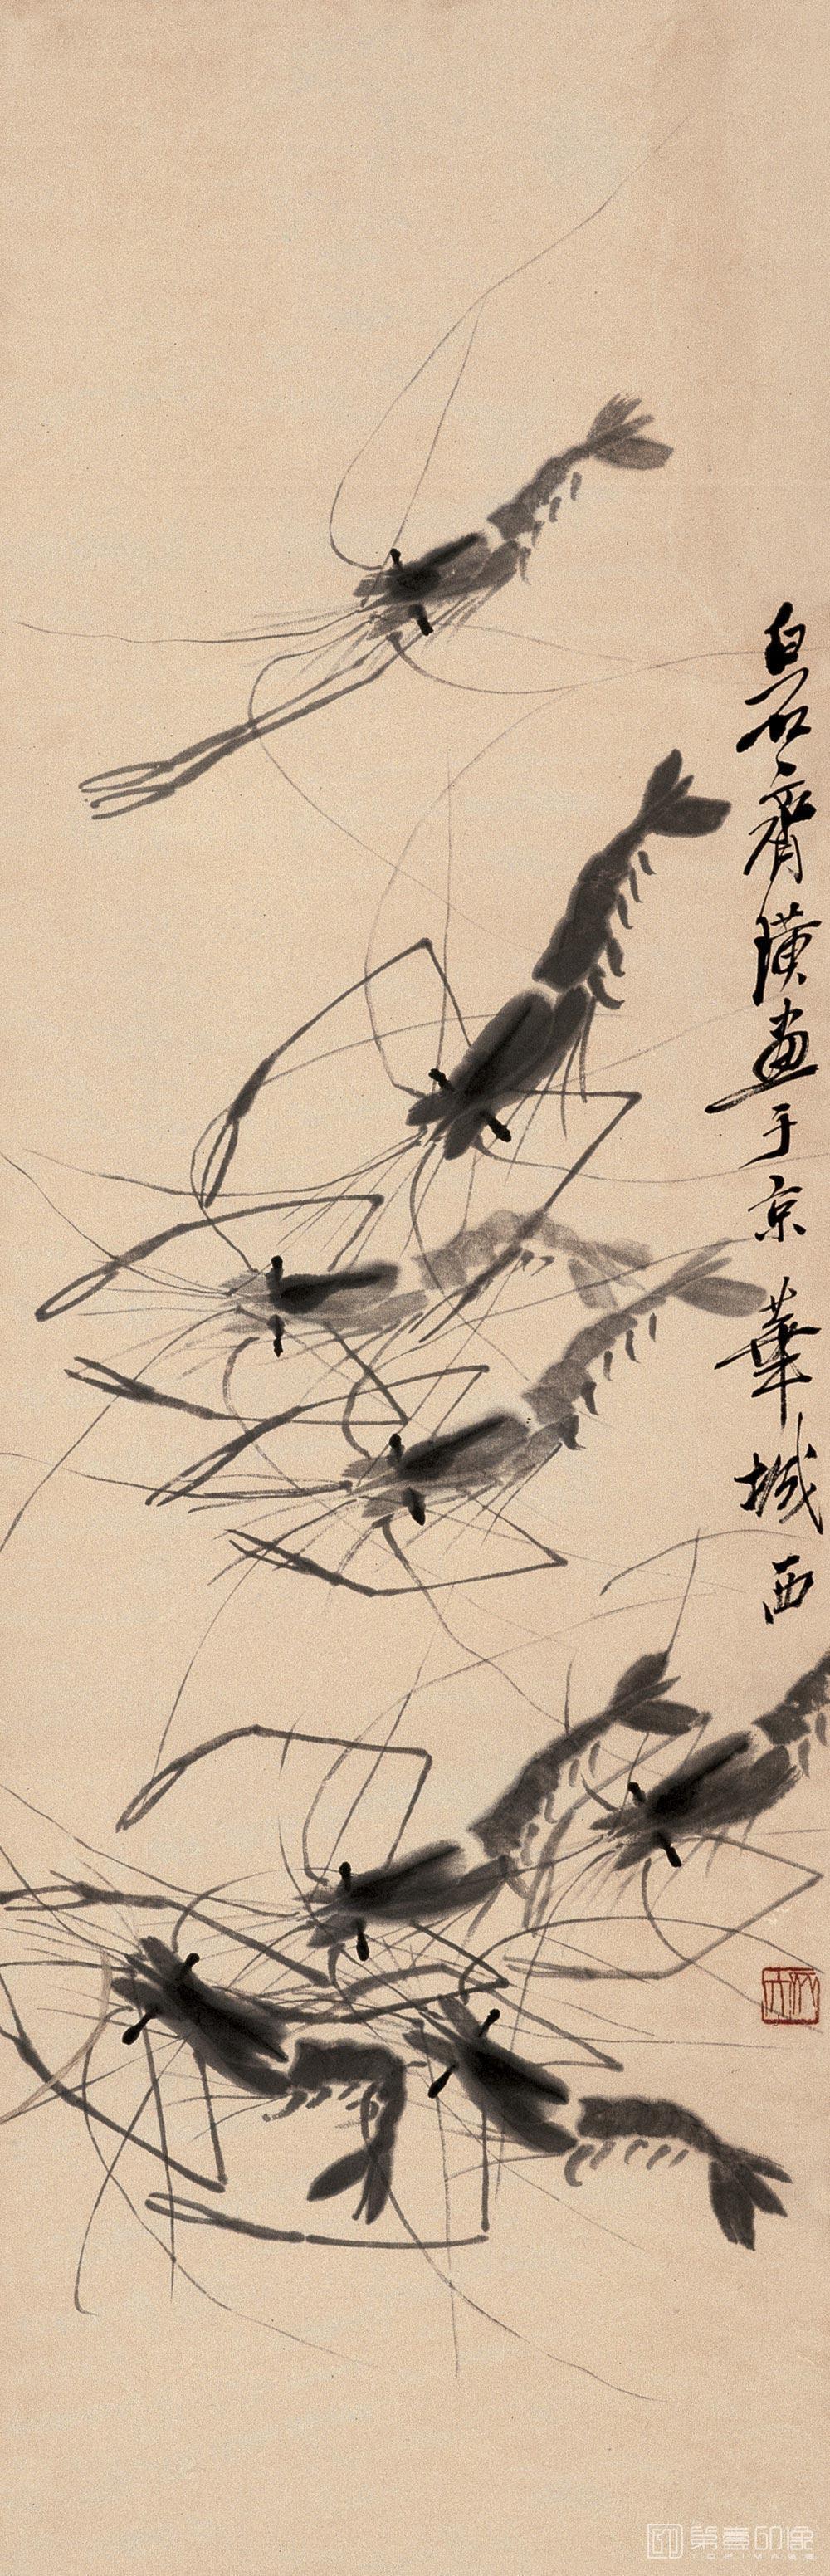 白石齊璜畫于京華城西
第壹印像
TOPIMAGES